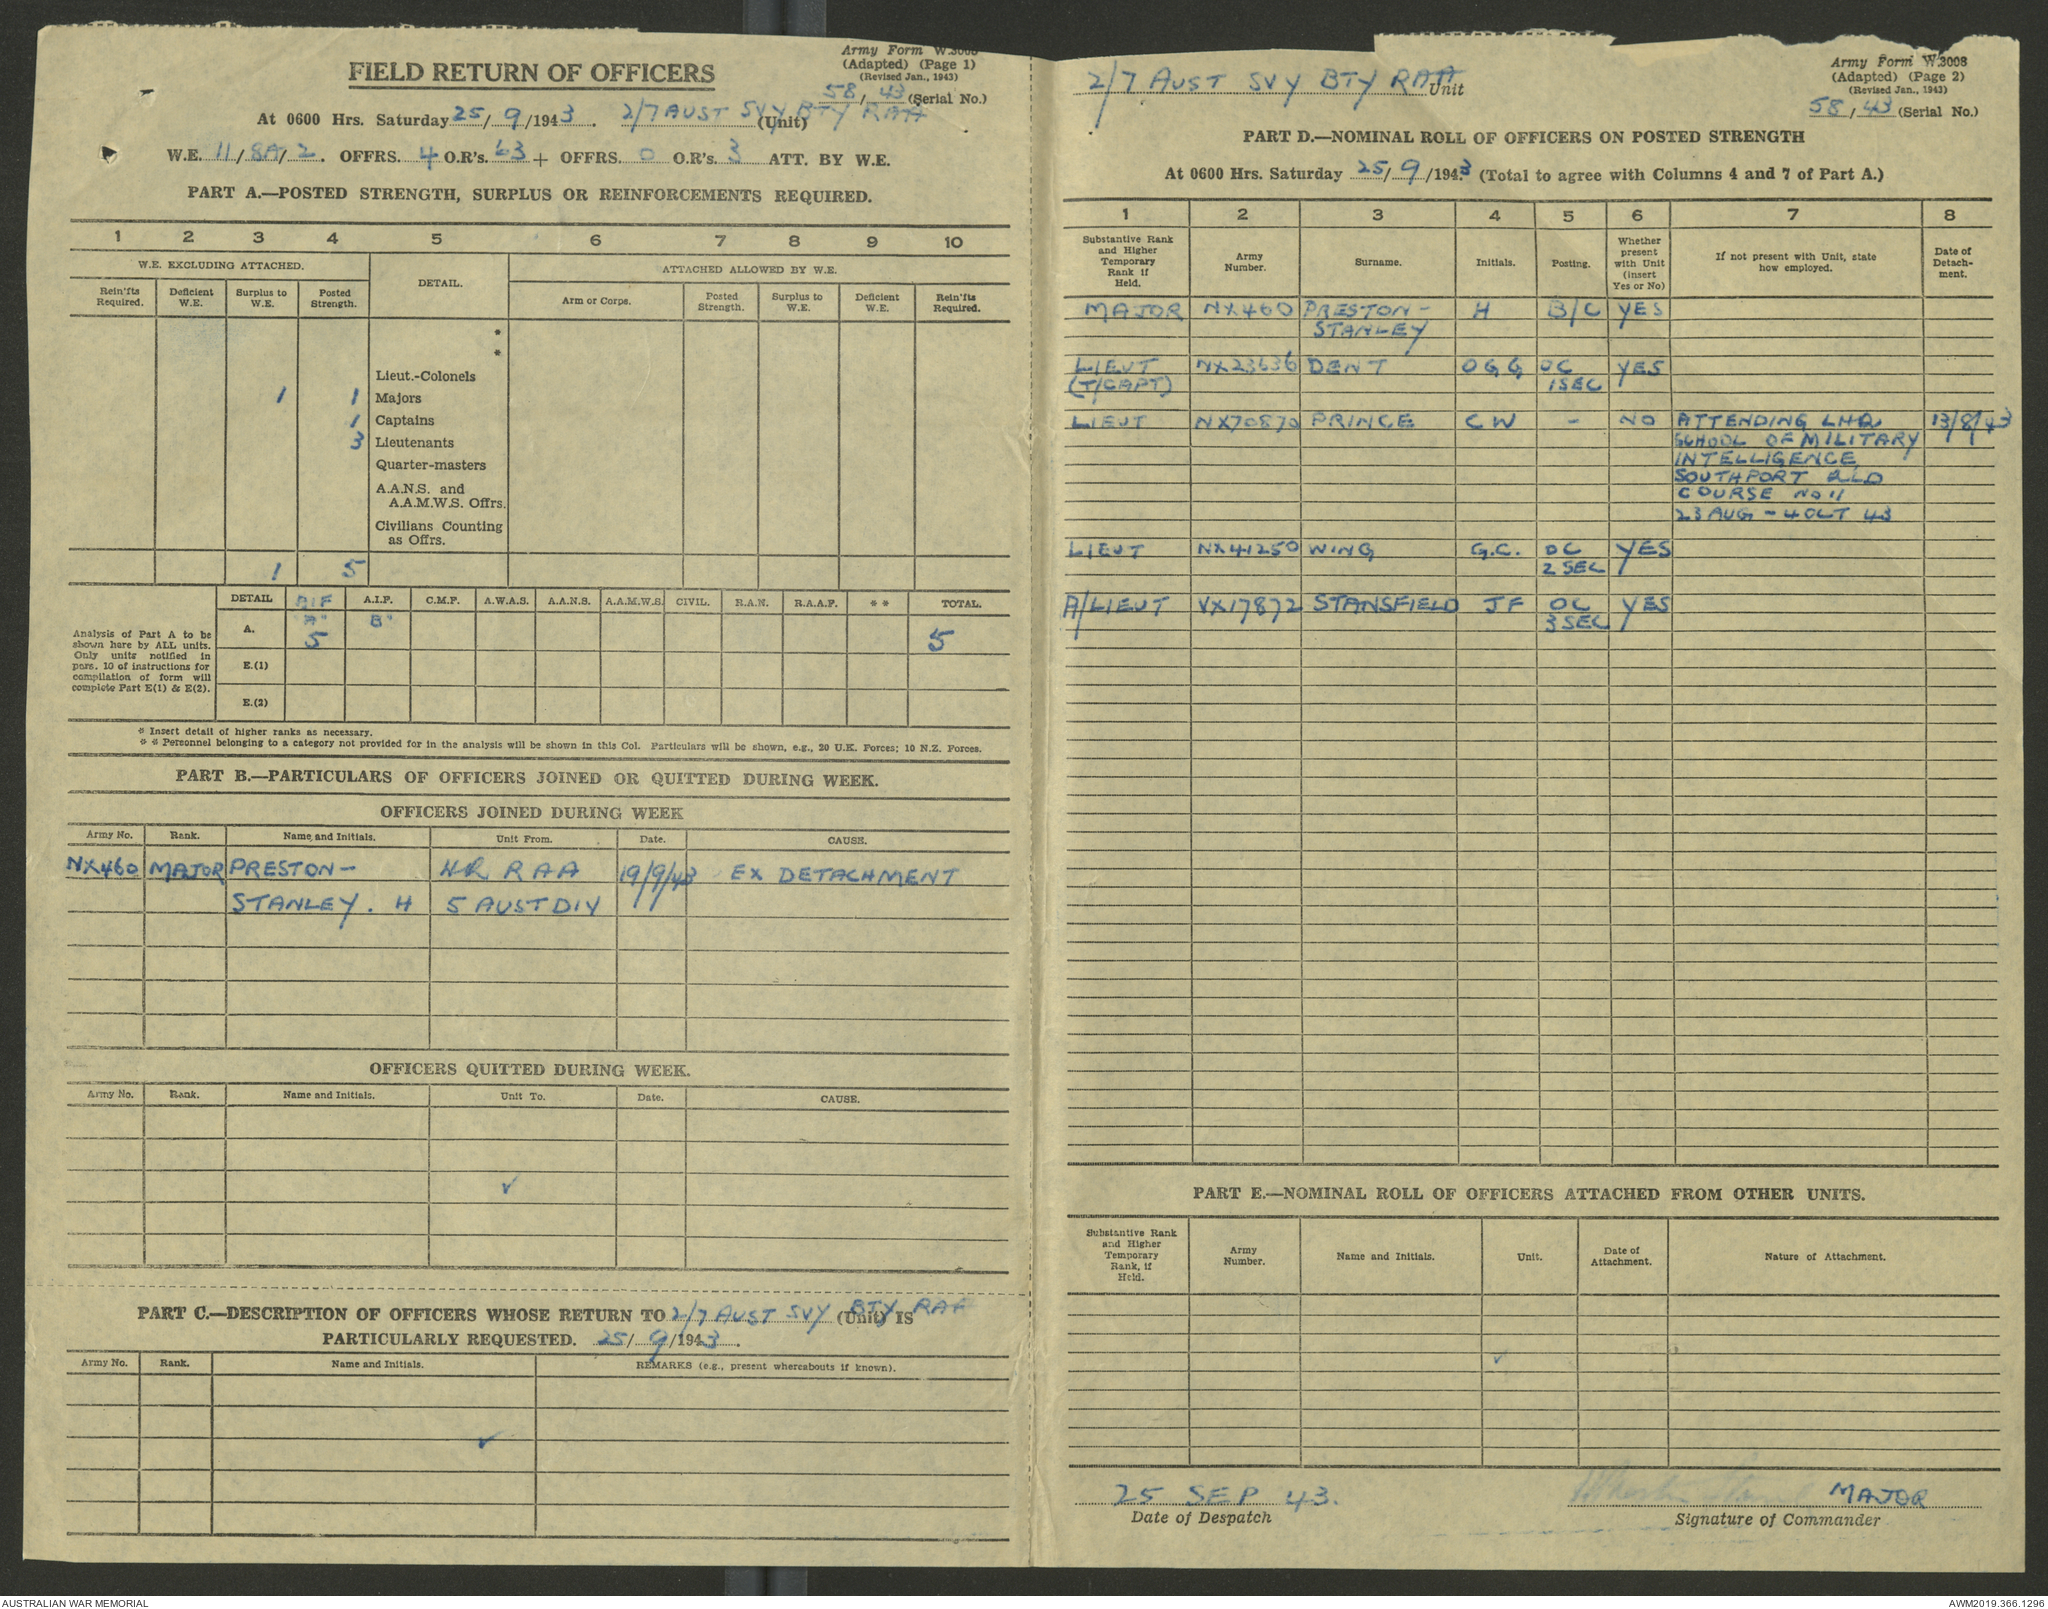 Army Form W.3008
(Adapted) (Page 1)
(Revised Jan., 1943)
FIELD RETURN OF OFFICERS
58/43 (Serial No.)
At 0600 Hrs. Saturday 25/9/1943. 2/7 AUST SVY BTY RAA (Unit)
W.E. 11/8A/2. OFFRS. 4 O.R's. 63 + OFFRS. 0 O.R's. 3 ATT. BY W.E.
PART A.—POSTED STRENGTH, SURPLUS OR REINFORCEMENTS REQUIRED.
1 2 3 4 5 6 7 8 9 10
W.E. EXCLUDING ATTACHED. DETAIL. ATTACHED ALLOWED BY W.E.
Rein'fts Required. Deficient W.E. Surplus to W.E. Posted Strength. Arm or Corps. Posted Strength. Surplus to W.E. Deficient W.E. Rein'fts Required.
*
*
Lieut.-Colonels
1 1 Majors
1 Captains
3 Lieutenants
Quarter-masters
A.A.N.S. and
A.A.M.W.S. Offrs.
Civilians Counting
as Offrs.
1 5
DETAIL AIF "A" A.I.F. "B" C.M.F. A.W.A.S. A.A.N.S. A.A.M.W.S. CIVIL. R.A.N. R.A.A.F. ** TOTAL.
Analysis of Part A to be
shown here by ALL units.
Only units notified in
para. 10 of instructions for
compilation of form will
complete Part E(1) & E(2).
A. 5 5
E.(1)
E.(2)
* Insert detail of higher ranks as necessary.
** Personnel belonging to a category not provided for in the analysis will be shown in this Col. Particulars will be shown, e.g., 20 U.K. Forces; 10 N.Z. Forces.
PART B.—PARTICULARS OF OFFICERS JOINED OR QUITTED DURING WEEK.
OFFICERS JOINED DURING WEEK
Army No. Rank. Name, and Initials. Unit From. Date. CAUSE.
NX460 MAJOR PRESTON- HQ RAA 19/9/43 EX DETACHMENT
STANLEY. H 5 AUST DIV
OFFICERS QUITTED DURING WEEK.
Army No. Rank. Name and Initials. Unit To. Date. CAUSE.
✓
PART C.—DESCRIPTION OF OFFICERS WHOSE RETURN TO 2/7 AUST SVY BTY RAA (Unit) IS
PARTICULARLY REQUESTED. 25/9/1943.
Army No. Rank. Name and Initials. REMARKS (e.g., present whereabouts if known).
✓
Army Form W.3008
(Adapted) (Page 2)
(Revised Jan., 1943)
2/7 AUST SVY BTY RAA Unit
58/43 (Serial No.)
PART D.—NOMINAL ROLL OF OFFICERS ON POSTED STRENGTH
At 0600 Hrs. Saturday 25/9/1943 (Total to agree with Columns 4 and 7 of Part A.)
1 2 3 4 5 6 7 8
Substantive Rank and Higher Temporary Rank if Held. Army Number. Surname. Initials. Posting. Whether present with Unit (insert Yes or No) If not present with Unit, state how employed. Date of Detach-ment.
MAJOR NX460 PRESTON- H B/C YES
STANLEY
LIEUT NX23636 DENT OGG OC YES
(T/CAPT) 1 SEC
LIEUT NX70870 PRINCE CW - NO ATTENDING LHQ 13/8/43
SCHOOL OF MILITARY
INTELLIGENCE
SOUTHPORT QLD
COURSE NO 11
23 AUG - 4 OCT 43
LIEUT NX41250 WING G.C. OC YES
2 SEC
A/LIEUT VX17872 STANSFIELD JF OC YES
3 SEC
PART E.—NOMINAL ROLL OF OFFICERS ATTACHED FROM OTHER UNITS.
Substantive Rank and Higher Temporary Rank, if Held. Army Number. Name and Initials. Unit. Date of Attachment. Nature of Attachment.
✓
25 SEP 43. MAJOR
Date of Despatch Signature of Commander
AUSTRALIAN WAR MEMORIAL AWM2019.366.1296